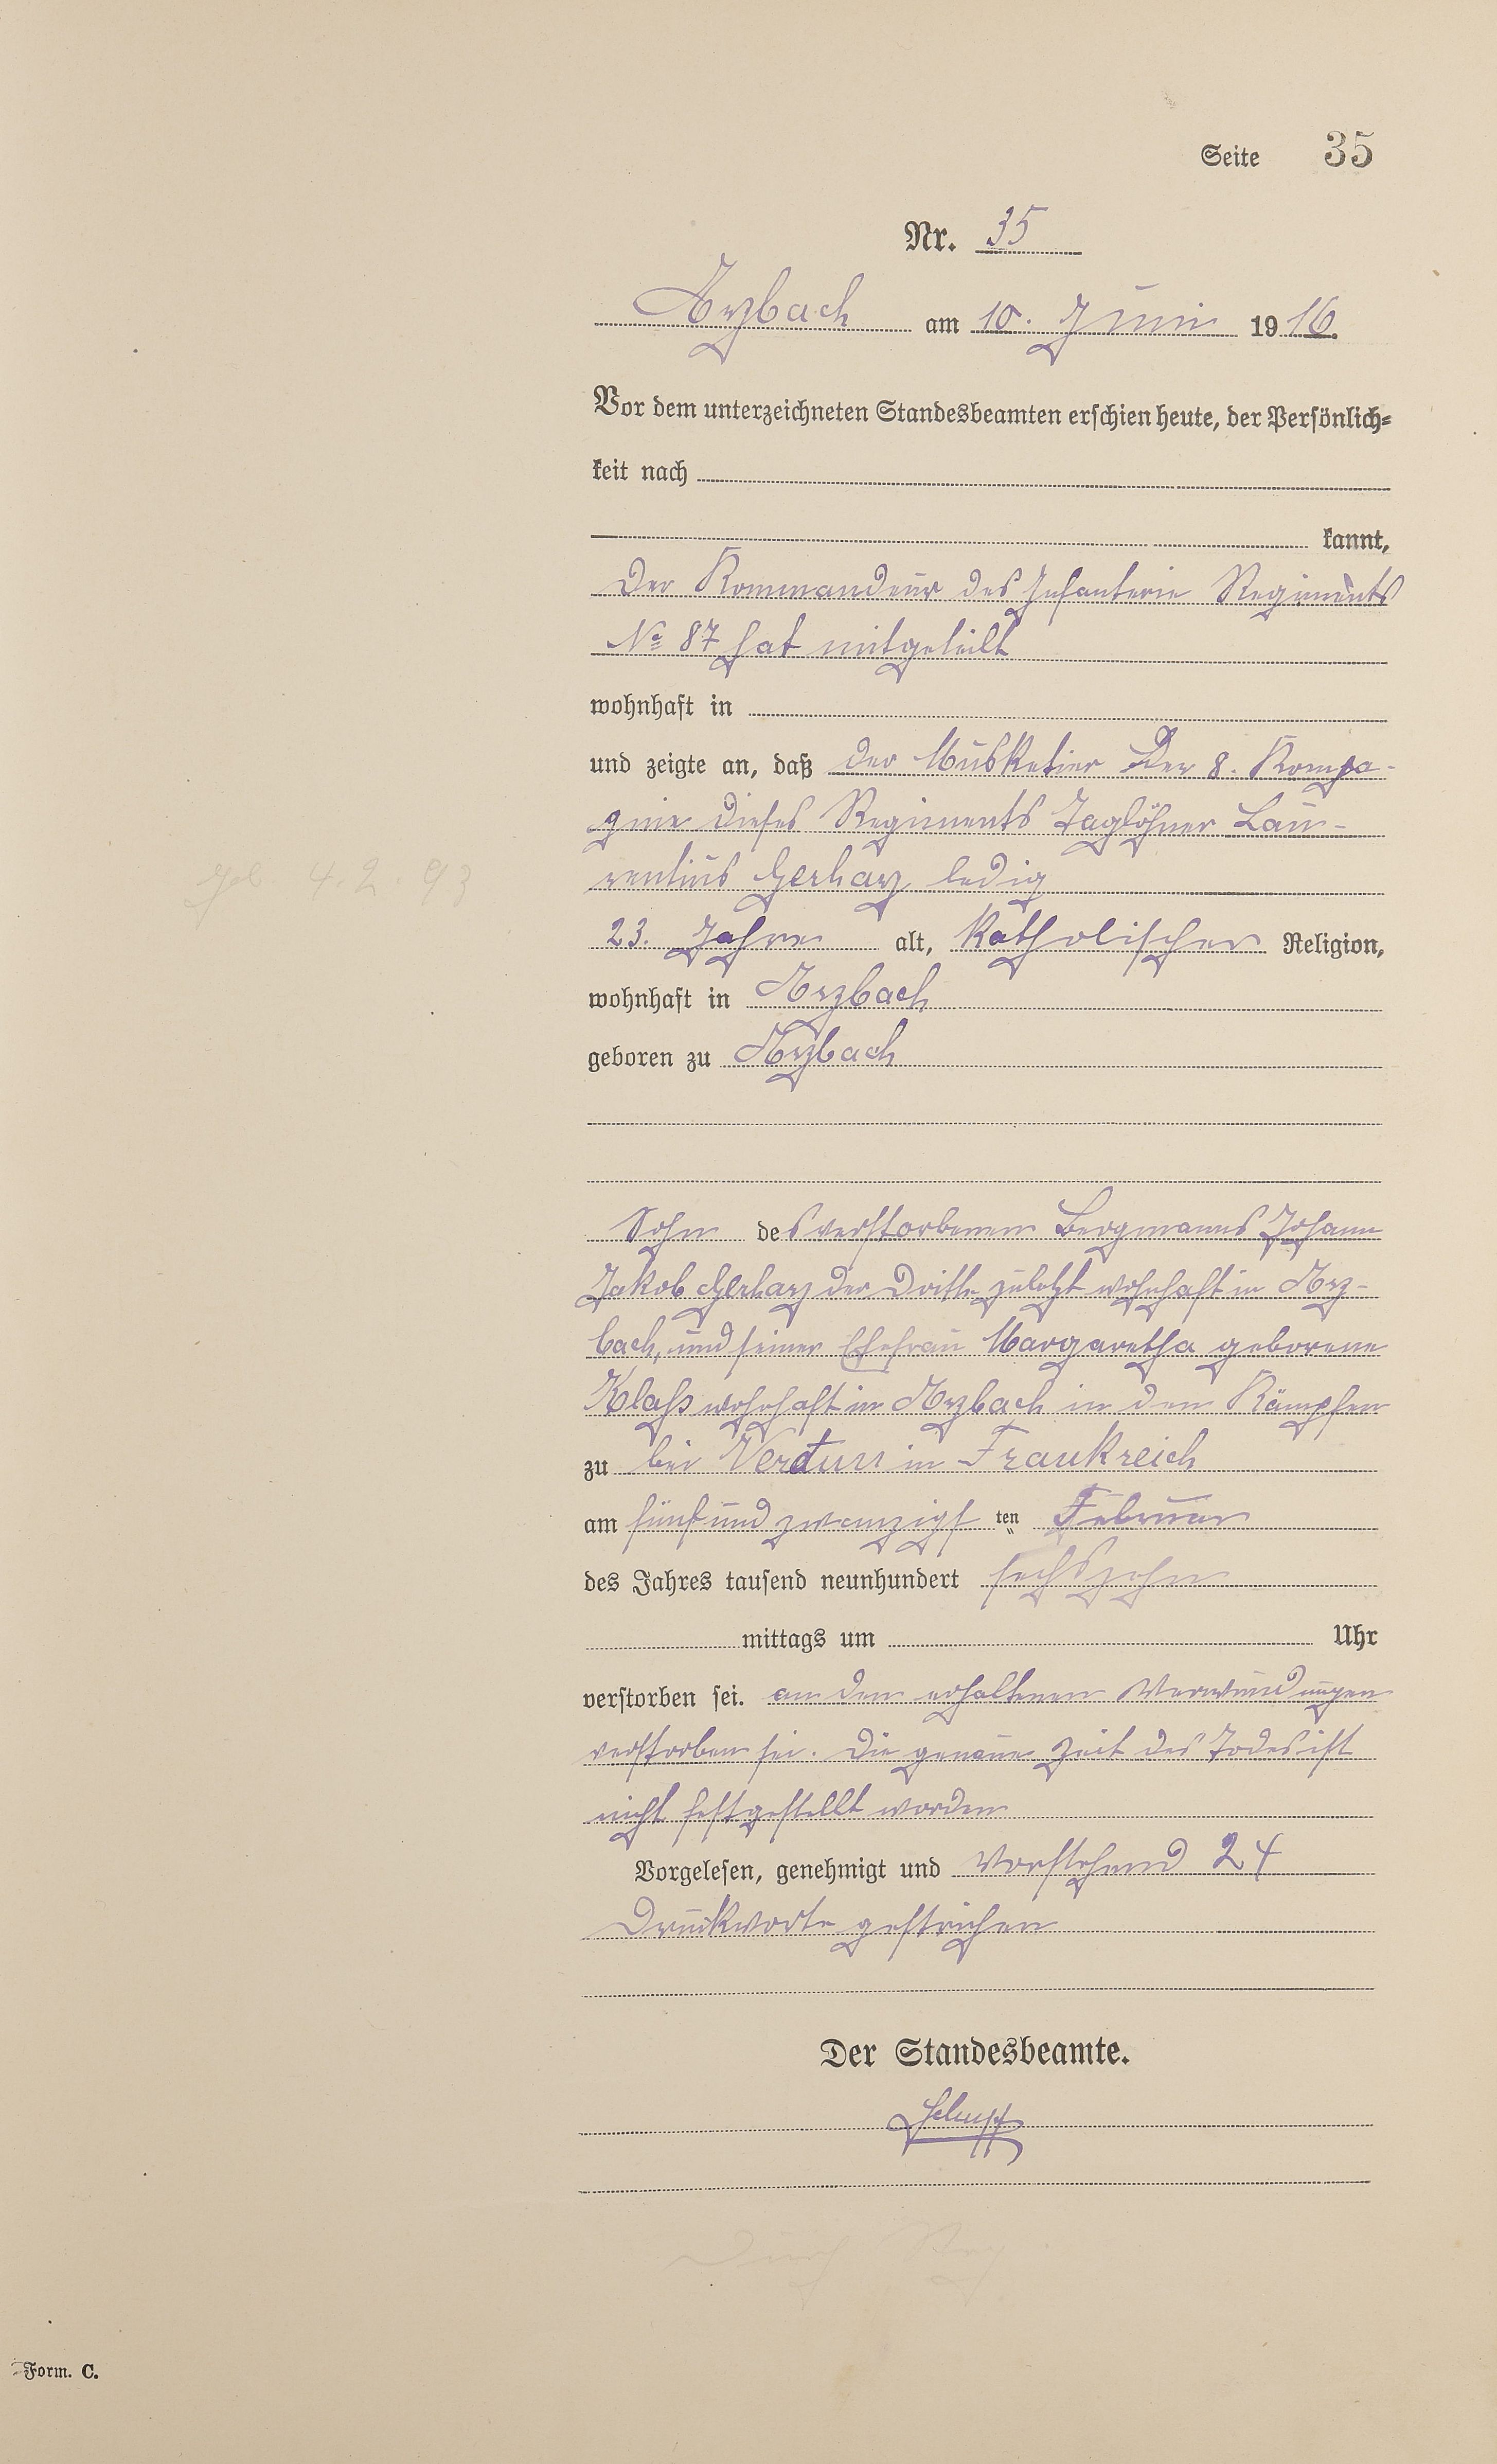 Seite 35
Nr. 35
Arzbach am 10. Juni 1916.
Vor dem unterzeichneten Standesbeamten erschien heute, der Persönlich=
keit nach
kannt,
Der Kommandeur des Infanterie Regiments
No 87 hat mitgeteilt
wohnhaft in
und zeigte an, daß der Musketier der 8. Kompa-
gnie dieses Regiments Taglöhner Lau-
rentius Gerharz ledig
geb 4. 2. 93
23. Jahre alt, katholischer Religion,
wohnhaft in Arzbach
geboren zu Arzbach
Sohn des verstorbenen Bergmanns Johann
Jakob Gerharz der Dritte zuletzt wohnhaft in Arz-
bach, und seiner Ehefrau Margaretha geborene
Klaß wohnhaft in Arzbach in den Kämpfen
zu bei Verdun in Frankreich
am fünfundzwanzigsten Februar
des Jahres tausend neunhundert sechszehn
mittags um Uhr
verstorben sei. an den erhaltenen Verwundungen
verstorben sei. Die genaue Zeit des Todes ist
nicht festgestellt worden
Vorgelesen, genehmigt und Vorstehend 24
Druckworte gestrichen
Der Standesbeamte.
Form. C.